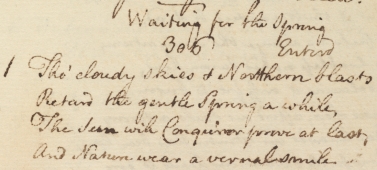 Waiting for the Spring
306 Enterd
1 Tho' cloudy skies & Northern blasts
Retard the gentle Spring a while,
The Sun will Conqu'ror prove at last,
And Nature wear a vernal smile